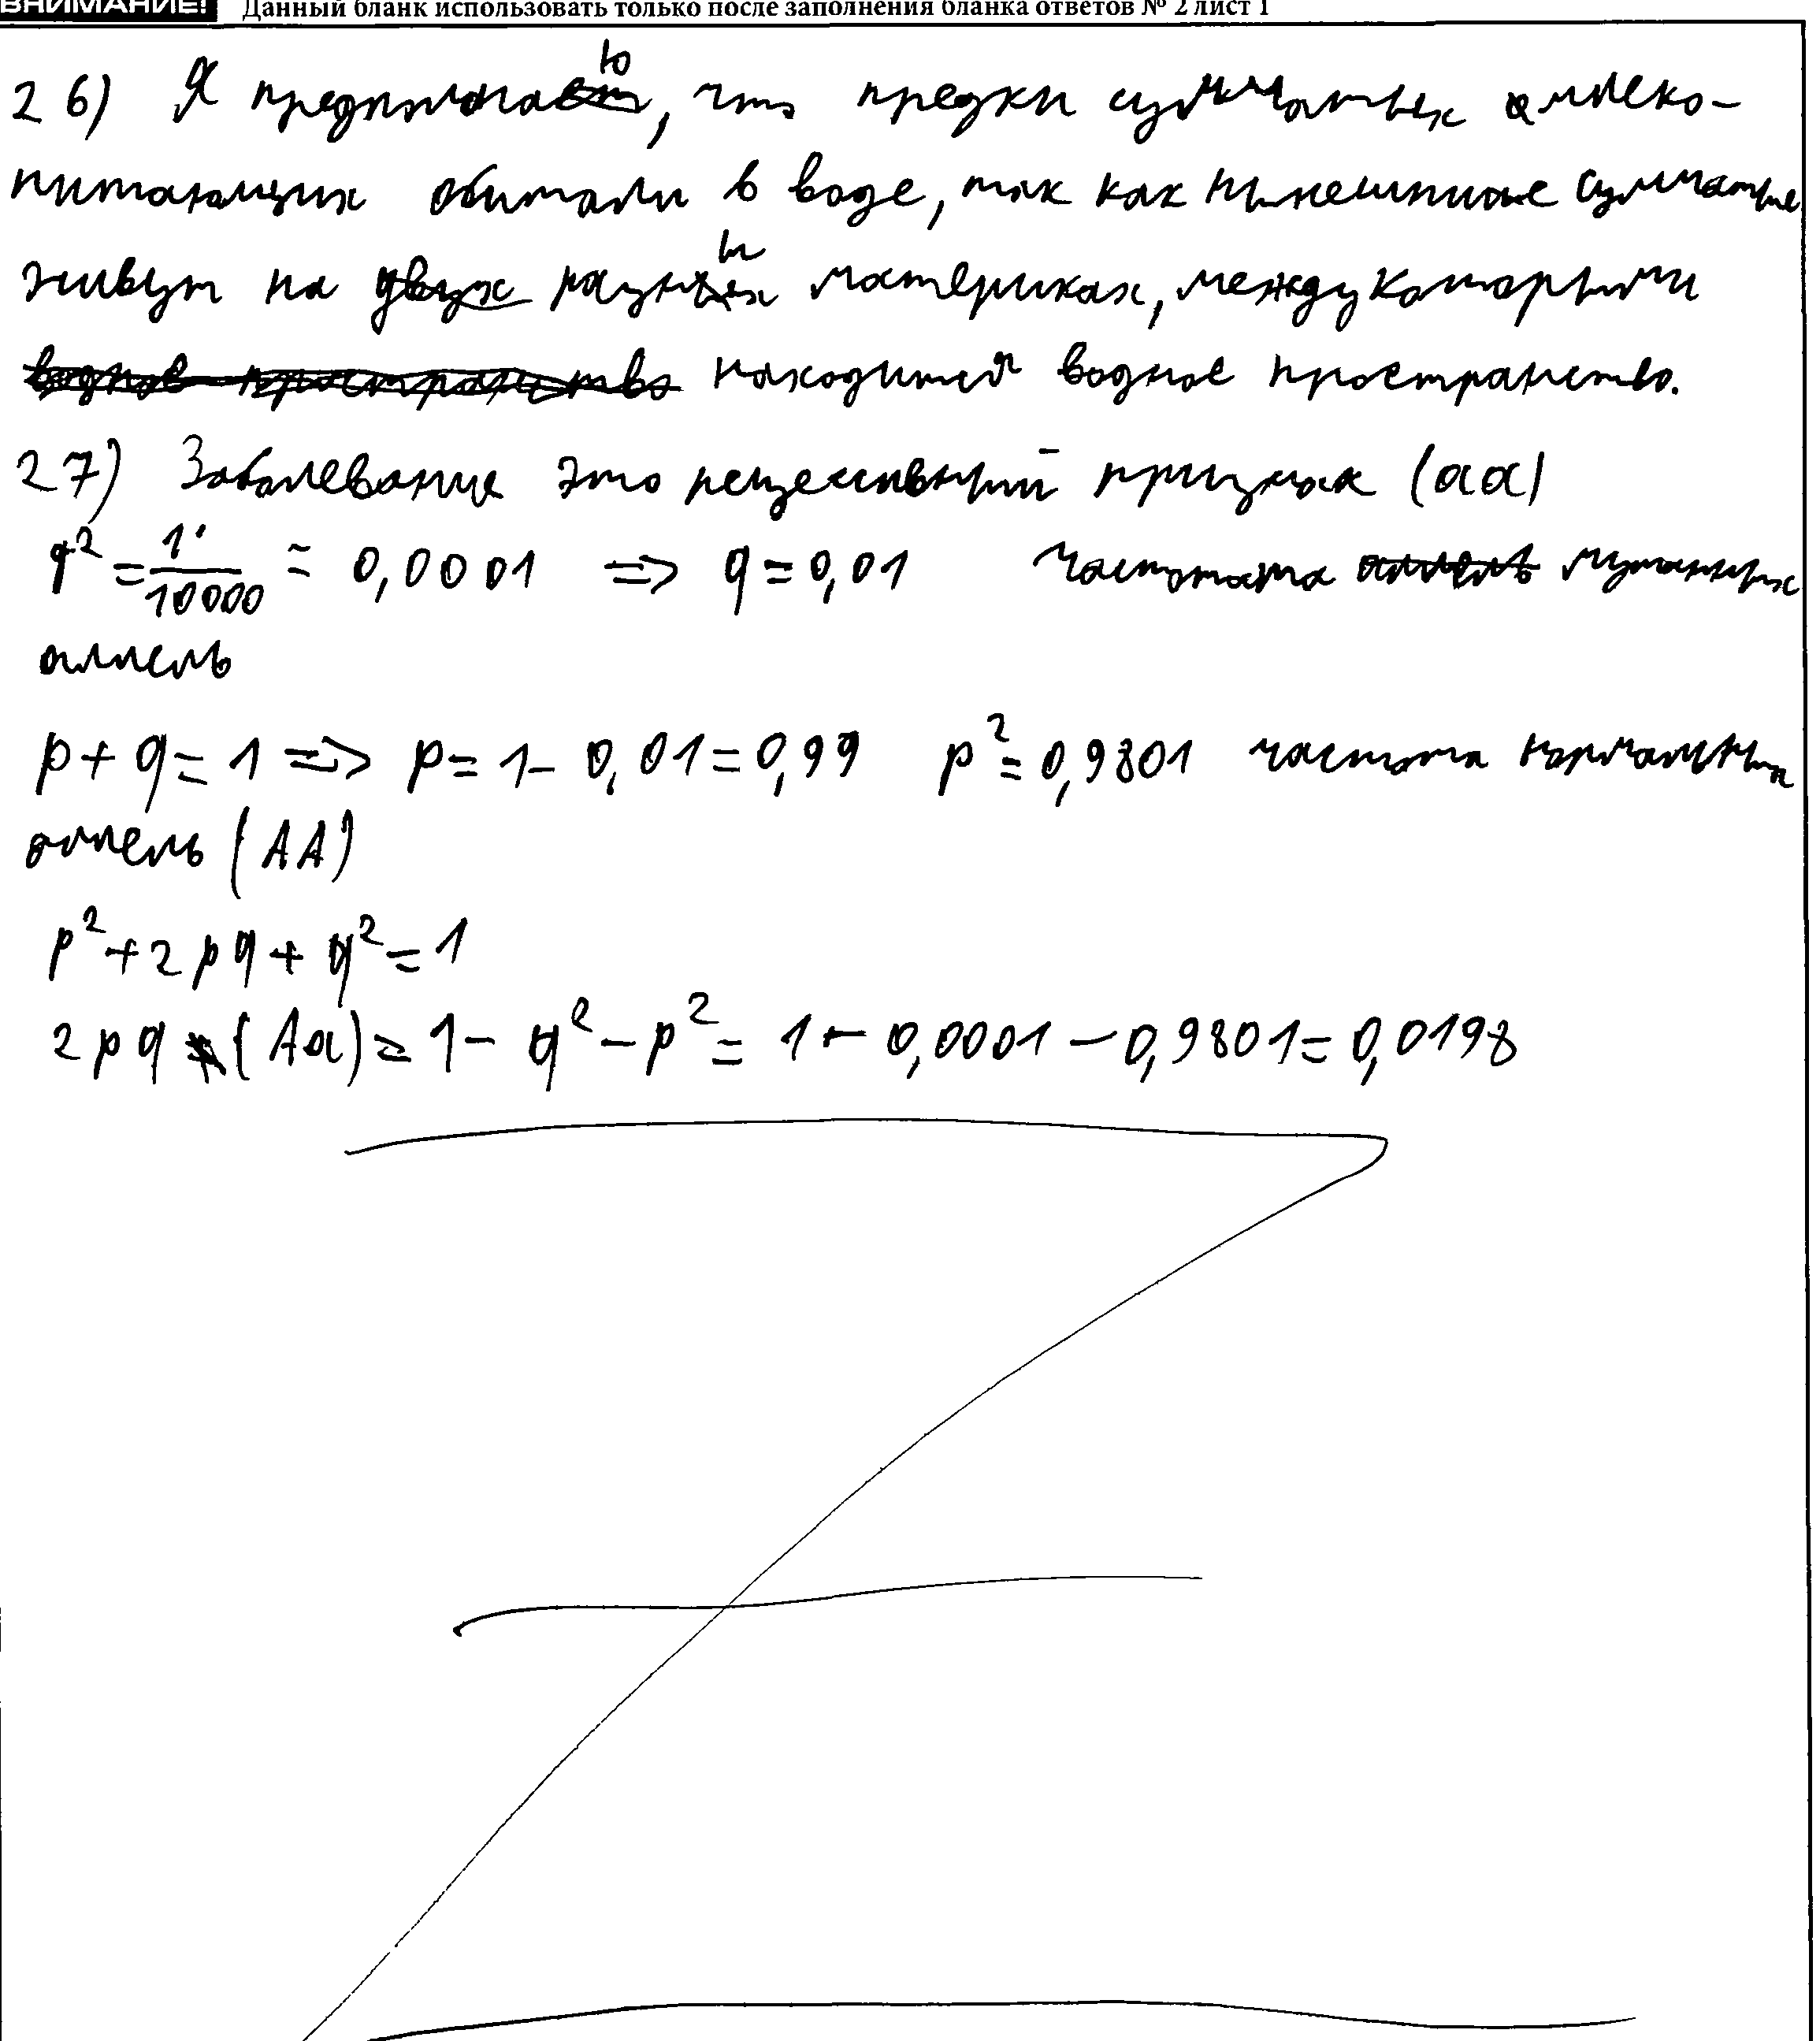 ВНИМАНИЕ! Данный бланк использовать только после заполнения бланка ответов № 2 лист 1
26) Я предполагаю, что предки сумчатых млеко-
питающих обитали в воде, так как нынешние сумчатые
живут на разных материках, между которыми
находится водное пространство.
27) Заболевание это рецессивный признак (aa)
q² = 1/10000 = 0,0001 => q = 0,01 частота мутантных
аллель
p + q = 1 => p = 1 - 0,01 = 0,99 p² = 0,9801 частота нормальных
аллель (AA)
p² + 2pq + q² = 1
2pq (Aa) = 1 - q² - p² = 1 - 0,0001 - 0,9801 = 0,0198